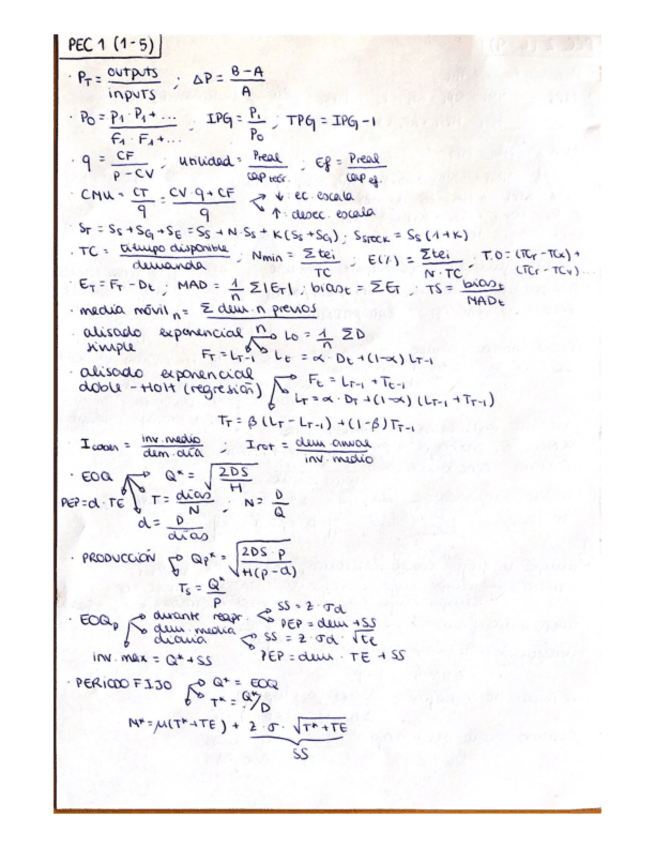 PEC 1 (1-5)
· PT = outputs / inputs ; ΔP = B-A / A
· P0 = P1·P1+... / F1·F1+... IPG = P1 / P0 ; TPG = IPG-1
· q = CF / P-CV ; utilidad = Preal / cap teór. ; Ef = Preal / cap ef.
· CMU = CT / q = CV·q+CF / q ↓: ec. escala
↑: desec. escala
· ST = SS+SG+SE = SS+N·SS+K(SS+SG) ; Sstock = SS(1+K)
· TC = tiempo disponible / demanda ; Nmin = Σtei / TC ; E(%) = Σtei / N·TC . T.O = (TCr-TCx)+
(TCr-TCy)...
· ET = FT-Dt ; MAD = 1/n Σ|ET| ; biast = ΣET ; TS = biast / MADt
· media móvil n = Σ dem. n previos / n
· alisado exponencial simple L0 = 1/n ΣD
FT = LT-1 Lt = α·Dt+(1-α) LT-1
· alisado exponencial doble-HOlt (regresión) Ft = LT-1+Tt-1
LT = α·DT+(1-α)(LT-1+TT-1)
TT = β(LT-LT-1)+(1-β)TT-1
· Icober = inv. medio / dem. día ; Irot = dem anual / inv. medio
· EOQ Q* = √2DS / H
PEP=d·TE T = días / N ; N = D / Q
d = D / días
· PRODUCCIÓN QP* = √2DS·p / H(p-d)
TS = Q* / P
· EOQP durante reapr SS = z·σd
PEP = dem+SS
dem. media diaria SS = z·σd·√TE
inv. max = Q*+SS PEP = dem·TE+SS
· PERIODO FIJO Q* = EOQ
T* = Q*/D
N* = μ(T*+TE) + z·σ·√T*+TE
SS